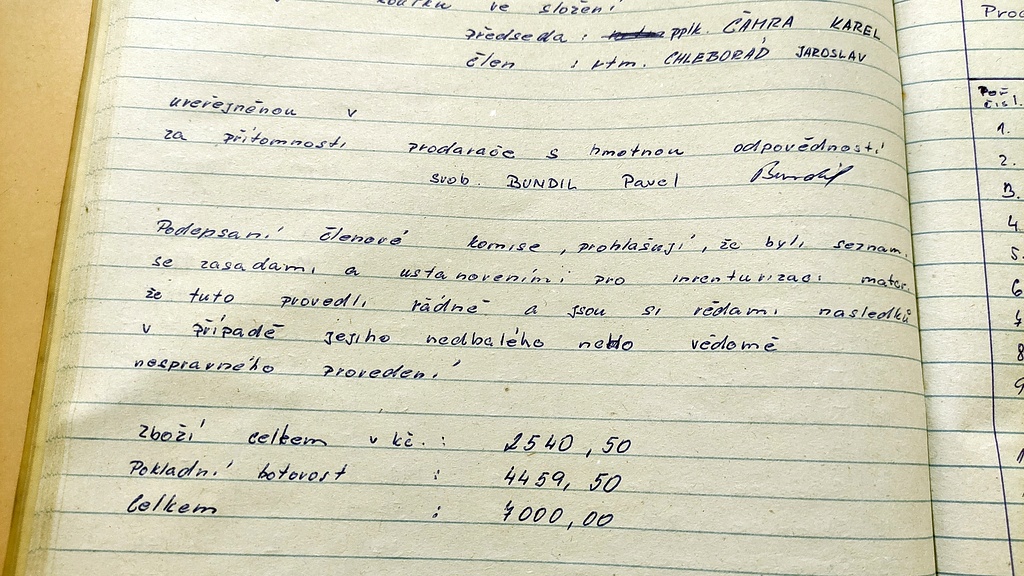 ve složení
předseda : pplk. ČAMRA KAREL
člen : rtm. CHLEBORÁD JAROSLAV
uveřejněnou v
za přítomnosti prodavače s hmotnou odpovědností
svob. BUNDIL Pavel Bundil
Podepsaní členové komise, prohlašují, že byli seznam.
se zasadami a ustanoveními pro inventurizaci mater.
že tuto provedli řádně a jsou si vědami nasledků
v případě jejiho nedbalého nebo vědomě
nespravného provedení
Zboží celkem v kč. : 2540,50
Pokladní hotovost : 4459,50
Celkem : 7000,00
Poř.
čísl.
1.
2.
3.
4.
5.
6
7
8
9